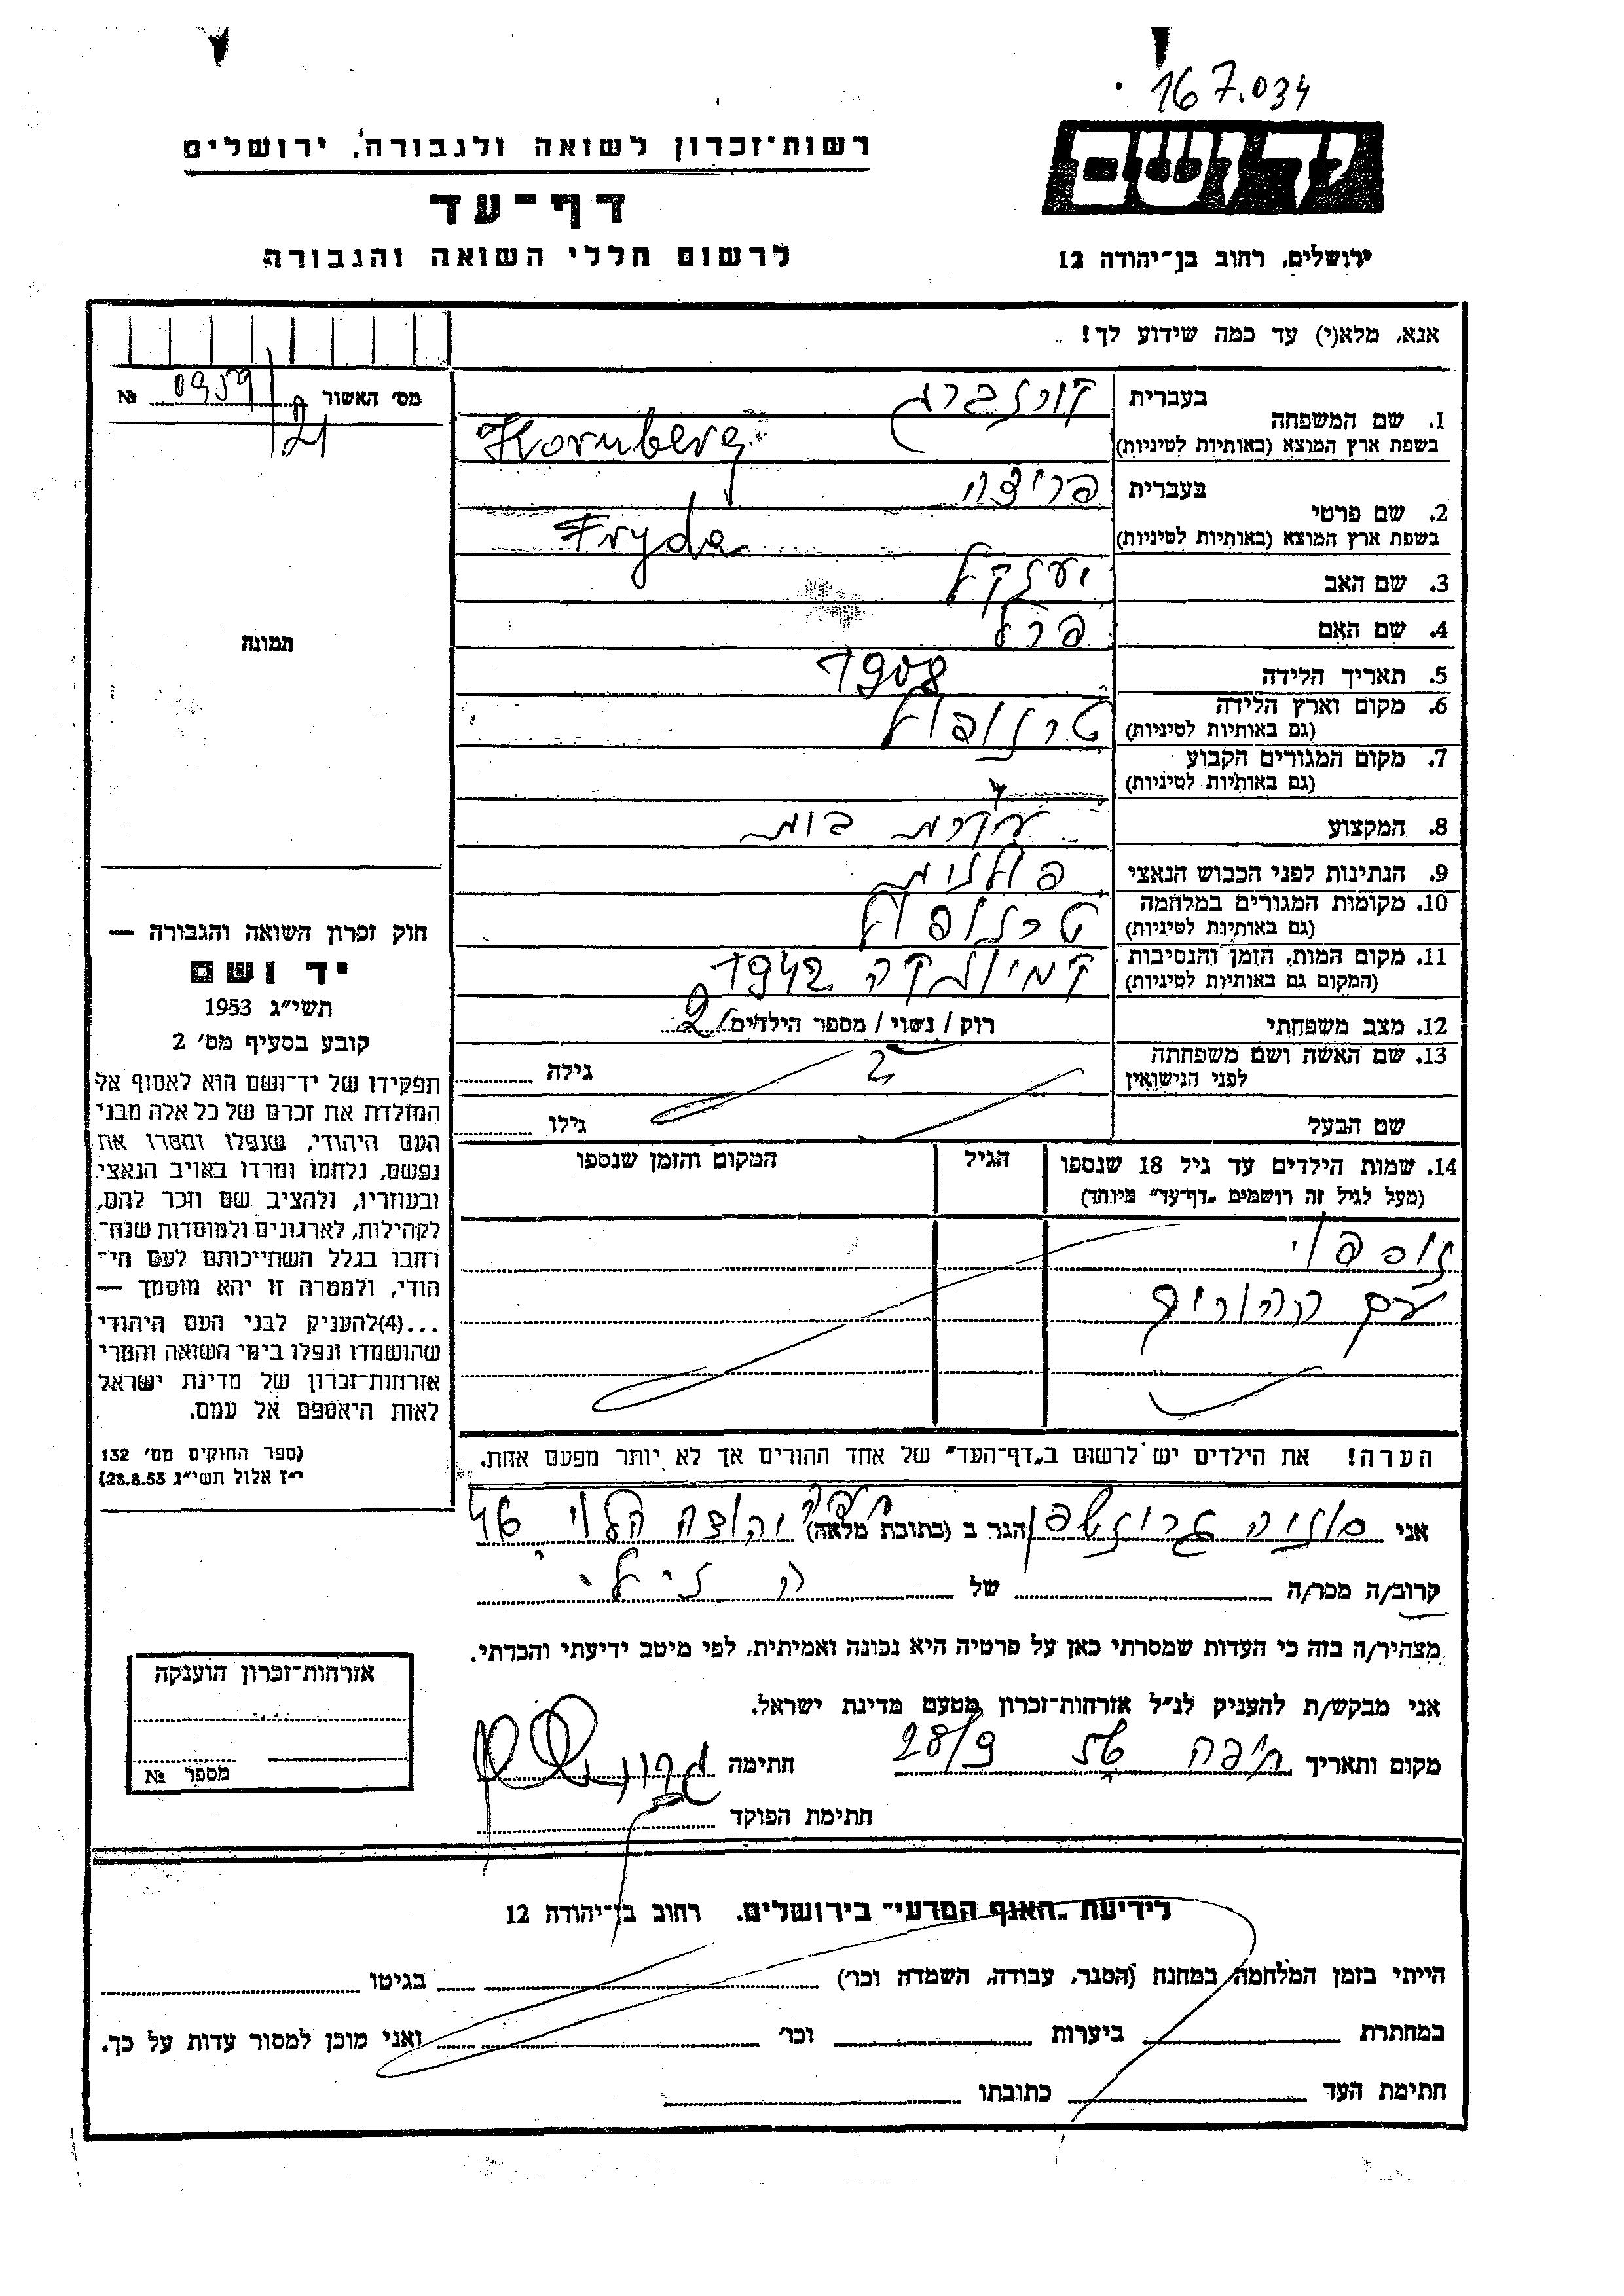 167.034
רשות-זכרון לשואה ולגבורה, ירושלים
יד ושם
דף-עד
לרשום חללי השואה והגבורה
ירושלים, רחוב בן-יהודה 12
אנא, מלא(י) עד כמה שידוע לך!
מס׳ האשור 0959 №
21
1. שם המשפחה
בעברית קורנברג
בשפת ארץ המוצא (באותיות לטיניות) Kornberg
2. שם פרטי
בעברית פרידה
בשפת ארץ המוצא (באותיות לטיניות) Fryda
3. שם האב
4. שם האם פרל
5. תאריך הלידה 1908
6. מקום וארץ הלידה טרנופול
(גם באותיות לטיניות)
7. מקום המגורים הקבוע
(גם באותיות לטיניות)
8. המקצוע עקרת בית
9. הנתינות לפני הכבוש הנאצי פולנית
10. מקומות המגורים במלחמה טרנופול
(גם באותיות לטיניות)
11. מקום המות, הזמן והנסיבות 1942
(המקום גם באותיות לטיניות)
12. מצב משפחתי רוק / נשוי / מספר הילדים 2
13. שם האשה ושם משפחתה
לפני הנישואין
גילה
שם הבעל
גילו
14. שמות הילדים עד גיל 18 שנספו הגיל המקום והזמן שנספו
(מעל לגיל זה רושמים „דף-עד״ מיוחד)
נוספו
עם ההורים
הערה! את הילדים יש לרשום ב„דף-העד״ של אחד ההורים אך לא יותר מפעם אחת.
תמונה
חוק זכרון השואה והגבורה —
יד ושם
תשי״ג 1953
קובע בסעיף מס׳ 2
תפקידו של יד-ושם הוא לאסוף אל
המולדת את זכרם של כל אלה מבני
העם היהודי, שנפלו ומסרו את
נפשם, נלחמו ומרדו באויב הנאצי
ובעוזריו, ולהציב שם וזכר להם,
לקהילות, לארגונים ולמוסדות שנח-
רחבו בגלל השתייכותם לעם הי-
הודי, ולמטרה זו יהא מוסמך —
...(4)להעניק לבני העם היהודי
שהושמדו ונפלו בימי השואה והמרי
אזרחות-זכרון של מדינת ישראל
לאות היאספם אל עמם.
(ספר החוקים מס׳ 132
י״ז אלול תשי״ג 28.8.53)
אני סוניה הגר ב (כתובת מלאה) חיפה יהודה הלוי 46
קרוב/ה מכר/ה של
מצהיר/ה בזה כי העדות שמסרתי כאן על פרטיה היא נכונה ואמיתית, לפי מיטב ידיעתי והכרתי.
אני מבקש/ת להעניק לנ״ל אזרחות-זכרון מטעם מדינת ישראל.
מקום ותאריך חיפה 28/9 חתימה
חתימת הפוקד
אזרחות-זכרון הוענקה
מספר №
לידיעת „האגף המדעי״ בירושלים. רחוב בן-יהודה 12
הייתי בזמן המלחמה במחנה (הסגר, עבודה, השמדה וכר׳) בגיטו
במחתרת ביערות וכר׳ ואני מוכן למסור עדות על כך.
חתימת העד כתובתו